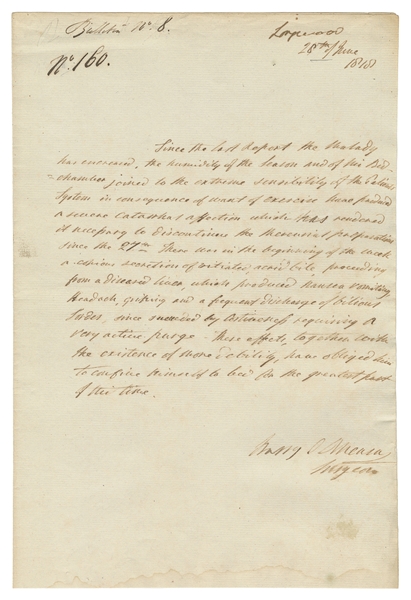 Bulletin No. 8.
Longwood
28th of June
1818
No. 160.
Since the last report the malady
has encreased, the humidity of the season and of his Bed
=chamber, joined to the extreme sensibility of the Patient's
System in consequence of want of exercise have produced
a severe Catarrhal affection which has rendered
it necessary to discontinue the mercurial preparations
since the 27th. There was in the beginning of the week
a copious secretion of vitiated, acrid bile, proceeding
from a diseased liver, which produced nausea vomiting
Headach, griping and a frequent discharge of bilious
Sodes, since succeeded by costiveness requiring a
very active purge - These effects, together with
the existence of more debility, have obliged him
to confine himself to bed for the greatest part
of this time.
Barry O'Meara
Surgeon